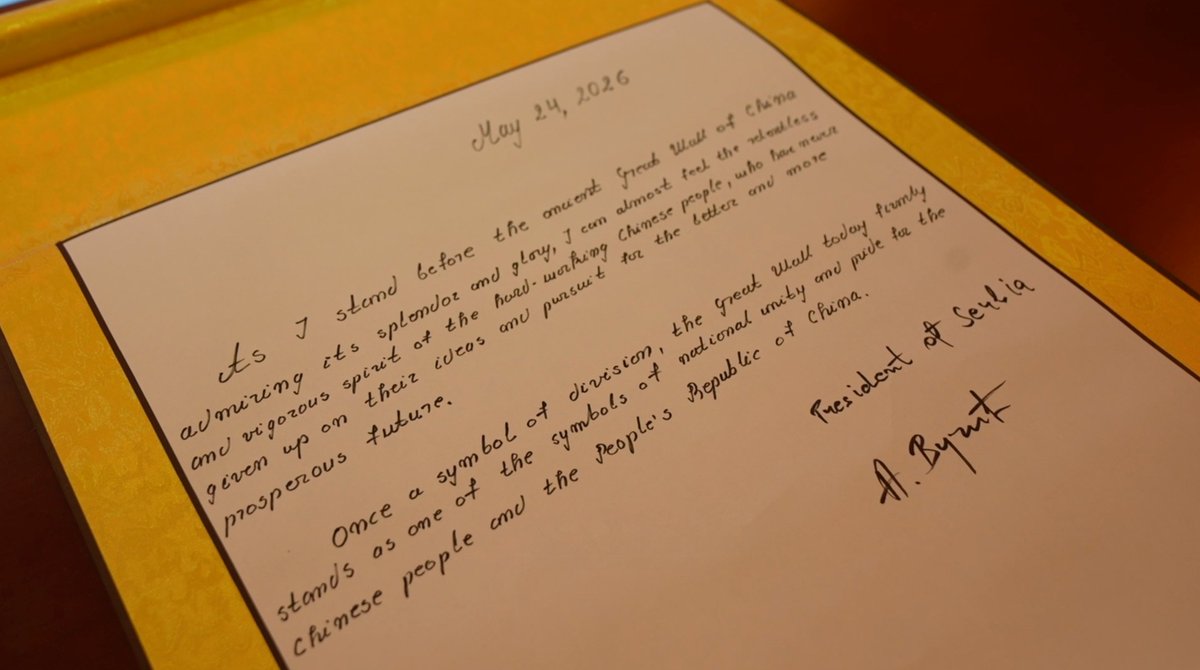 May 24, 2026
As I stand before the ancient Great Wall of China
admiring its splendor and glory, I can almost feel the relentless
and vigorous spirit of the hard-working Chinese people, who have never
given up on their ideas and pursuit for the better and more
prosperous future.
Once a symbol of division, the Great Wall today firmly
stands as one of the symbols of national unity and pride for the
Chinese people and the People's Republic of China.
President of Serbia
А. Вучић